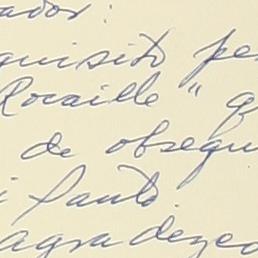 ador:
quisito pe
Rocaille" q
de obsequ
i tanto.
agradezco